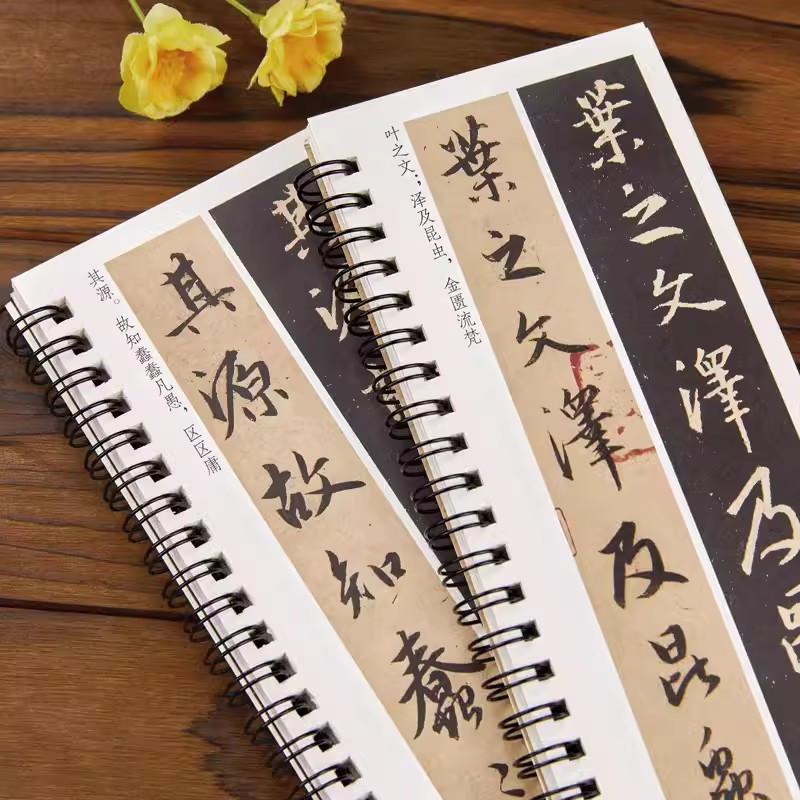 其源。故知蠢蠢凡愚，区区庸
其源故知蠢
其源
叶之文；泽及昆虫，金匮流梵
葉之文澤及昆蟲
葉之文澤及